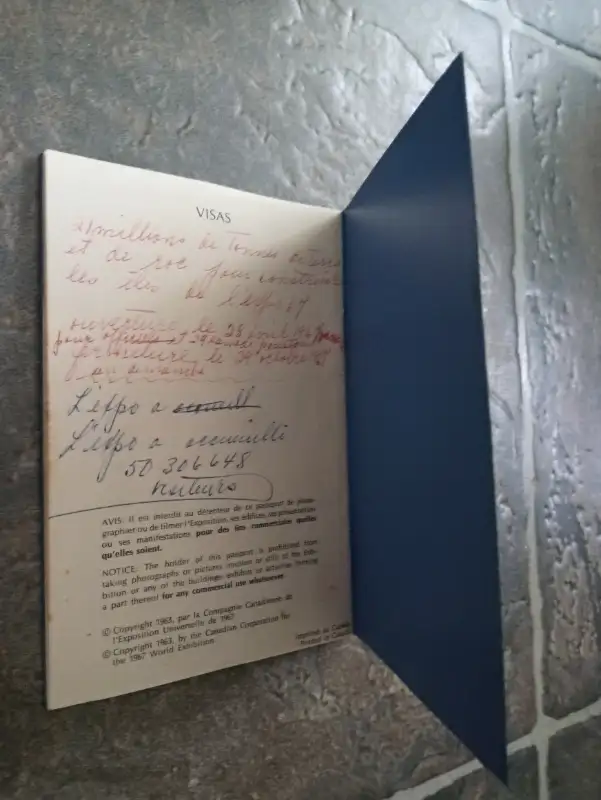 VISAS
millions de tonnes
et de roc pour construire
les îles de l'expo 67
ouverture le 28 avril
pour officiels et
fermeture le 29 octobre
dimanche
L'expo a
L'expo a accueilli
50 306 648
visiteurs
AVIS: Il est interdit au détenteur de ce passeport de photo-
graphier ou de filmer l'Exposition, ses édifices, ses présentations
ou ses manifestations pour des fins commerciales quelles
qu'elles soient.
NOTICE: The holder of this passport is prohibited from
taking photographs or pictures (motion or still) of the Exhi-
bition or any of the buildings, exhibits or activities forming
a part thereof for any commercial use whatsoever.
© Copyright 1963, par la Compagnie Canadienne de
l'Exposition Universelle de 1967
© Copyright 1963, by the Canadian Corporation for
the 1967 World Exhibition
Imprimé au Canada
Printed in Canada